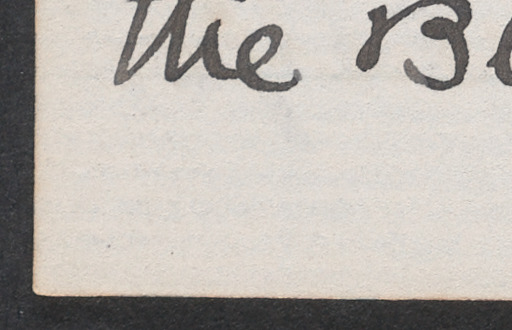 the B